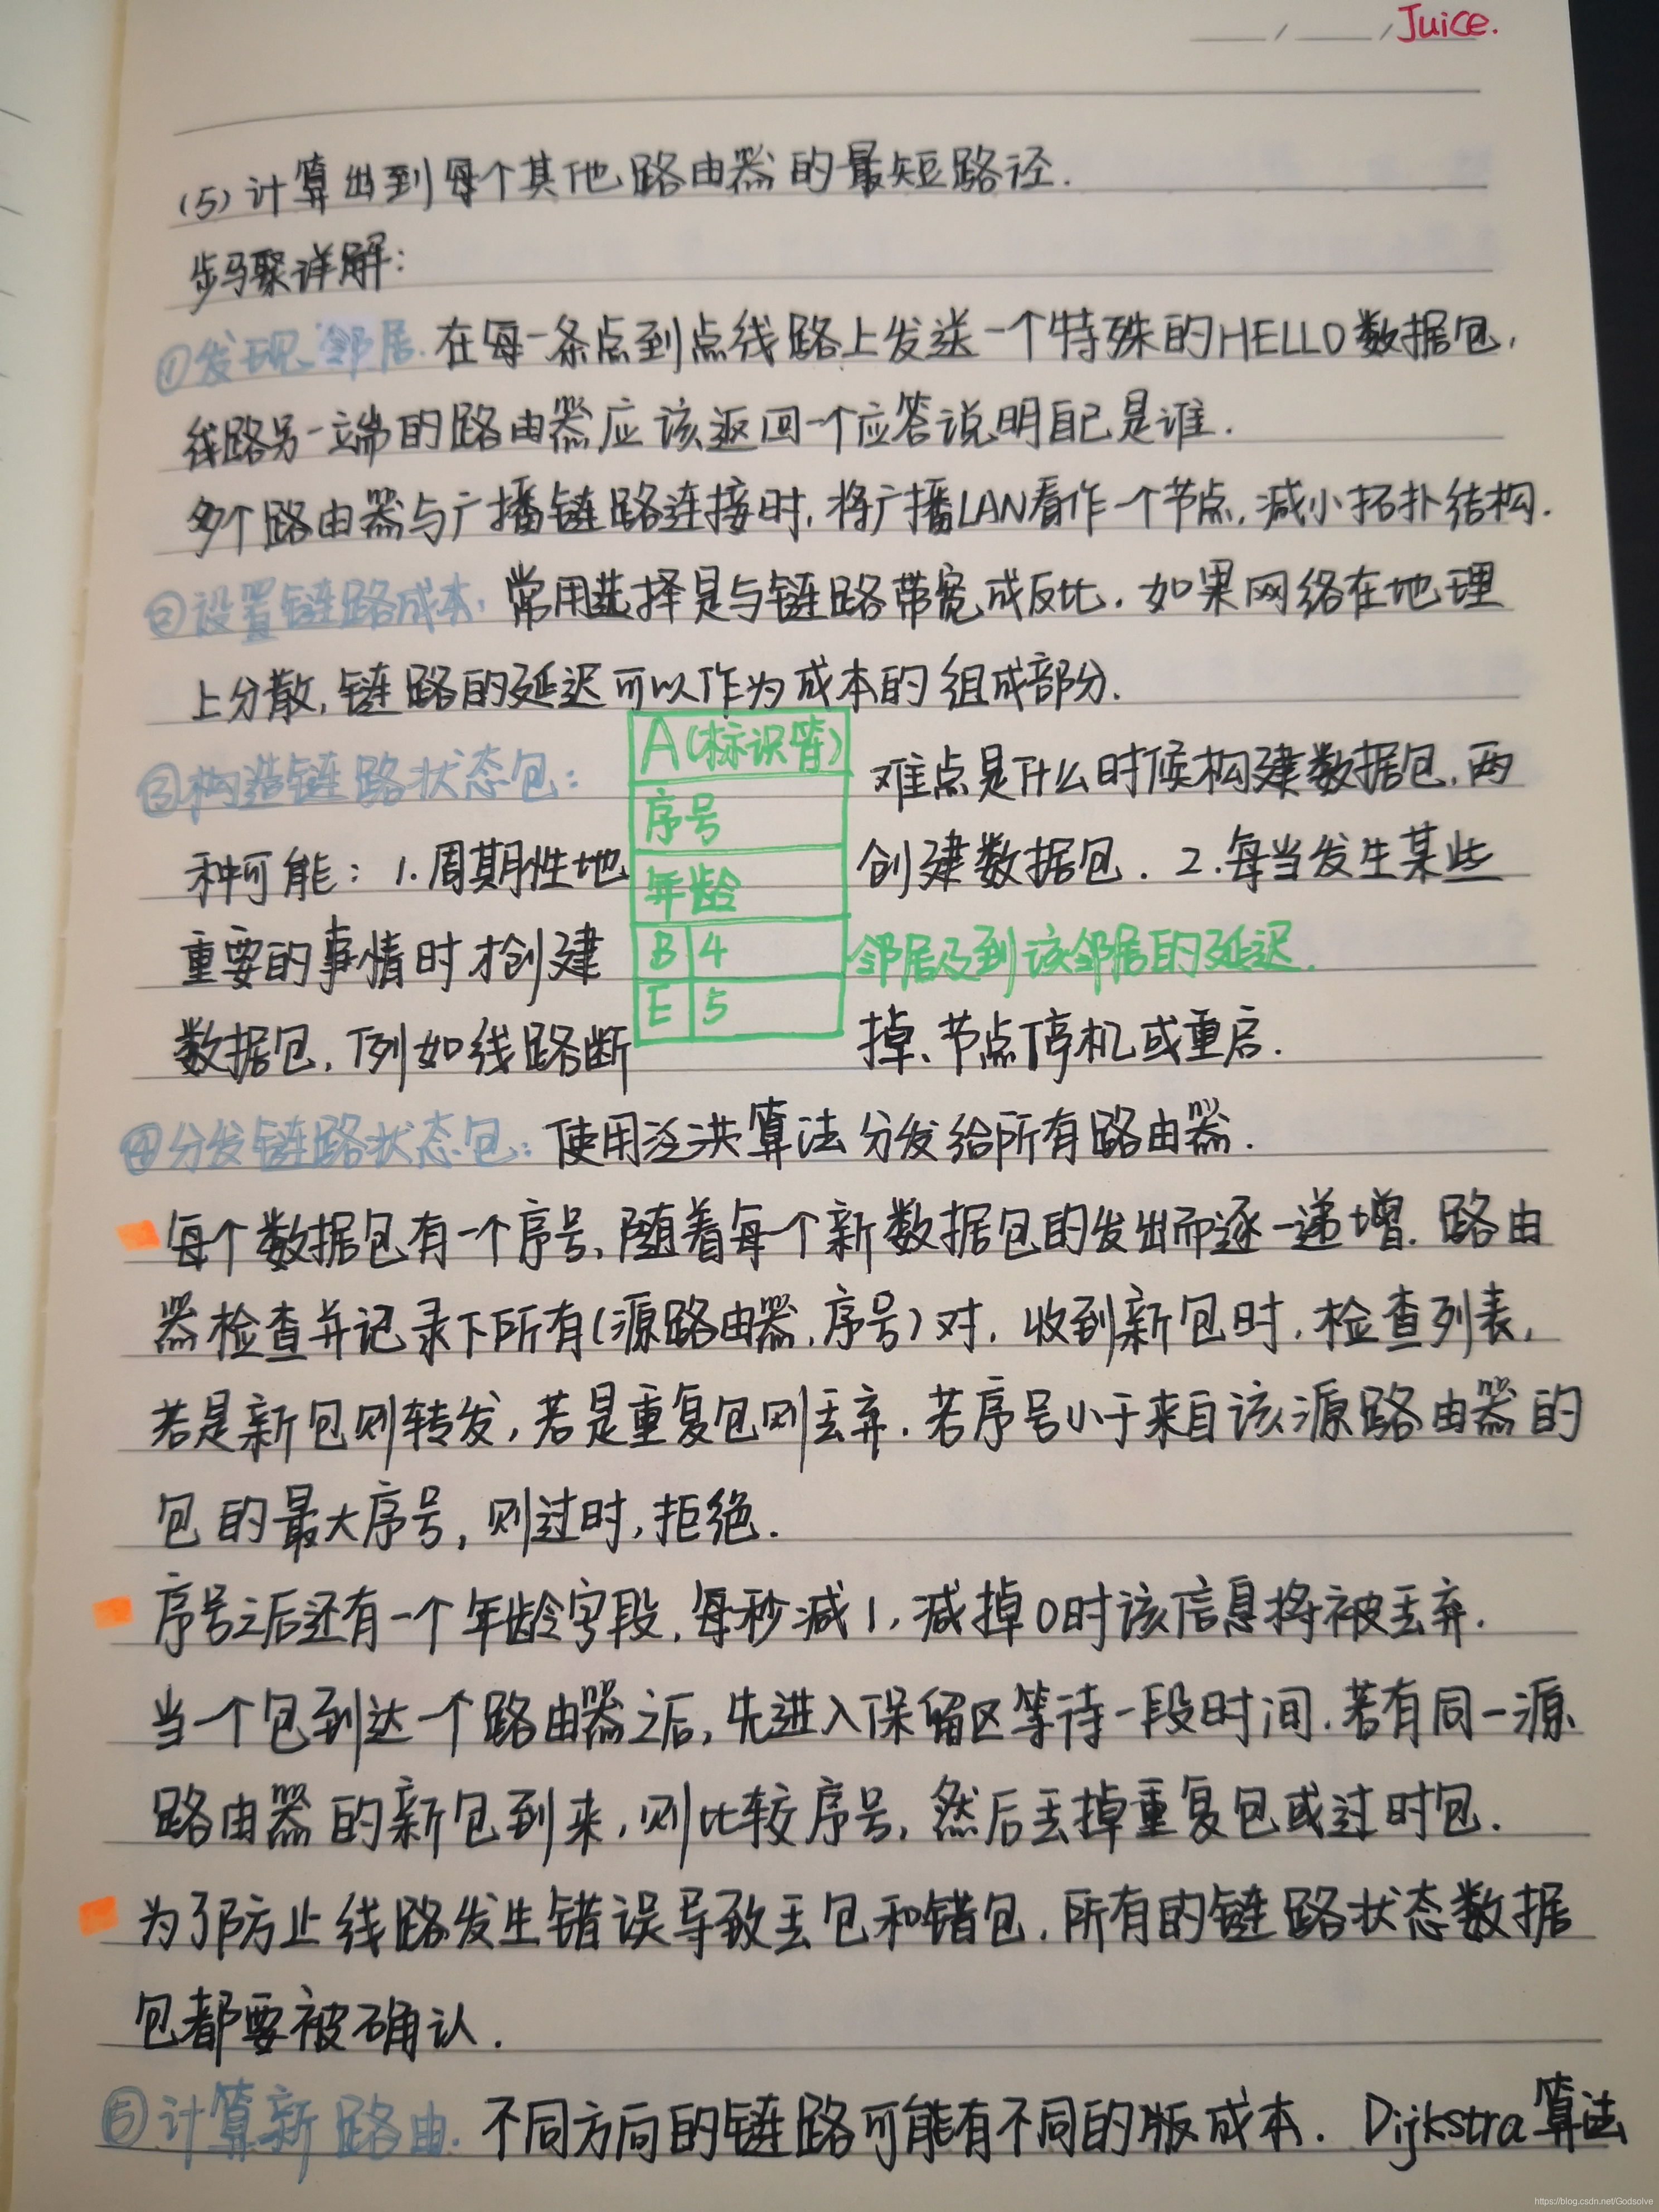 Juice.
(5)计算出到每个其他路由器的最短路径.
步骤详解:
①发现邻居.在每一条点到点线路上发送一个特殊的HELLO数据包,
线路另一端的路由器应该返回一个应答说明自己是谁.
多个路由器与广播链路连接时,将广播LAN看作一个节点,减小拓扑结构.
②设置链路成本:常用选择是与链路带宽成反比.如果网络在地理
上分散,链路的延迟可以作为成本的组成部分.
③构造链路状态包: A(标识符) 难点是什么时候构建数据包.两
序号
种可能:1.周期性地 年龄 创建数据包.2.每当发生某些
重要的事情时才创建 B 4 邻居及到该邻居的延迟.
E 5
数据包,例如线路断 掉、节点停机或重启.
④分发链路状态包:使用泛洪算法分发给所有路由器.
每个数据包有一个序号,随着每个新数据包的发出而逐一递增.路由
器检查并记录下所有(源路由器,序号)对,收到新包时,检查列表,
若是新包则转发,若是重复包则丢弃.若序号小于来自该源路由器的
包的最大序号,则过时,拒绝.
序号之后还有一个年龄字段,每秒减1,减掉0时该信息将被丢弃.
当一个包到达一个路由器之后,先进入保留区等待一段时间.若有同一源
路由器的新包到来,则比较序号,然后丢掉重复包或过时包.
为了防止线路发生错误导致丢包和错包,所有的链路状态数据
包都要被确认.
⑤计算新路由.不同方向的链路可能有不同的版成本.Dijkstra算法
https://blog.csdn.net/Godsolve